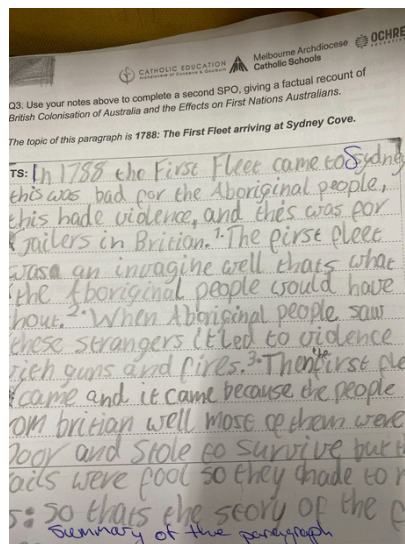 CATHOLIC EDUCATION
Melbourne Archdiocese
Catholic Schools
OCHRE
Q3. Use your notes above to complete a second SPO, giving a factual recount of
British Colonisation of Australia and the Effects on First Nations Australians.
The topic of this paragraph is 1788: The First Fleet arriving at Sydney Cove.
TS: In 1788 the First Fleet came to Sydney
this was bad for the Aboriginal people,
this hade violence, and this was for
Jailers in Britian. 1. The first fleet
was an invagine well thats what
the Aboriginal people would have
hout. 2. When Aboriginal people saw
these strangers it led to violence
with guns and fires. 3. Then the first fle
came and it came because the people
om britian well most of them were
Poor and Stole to survive but th
ails were fool so they hade to
S: So thats the story of the
Summary of the paragraph